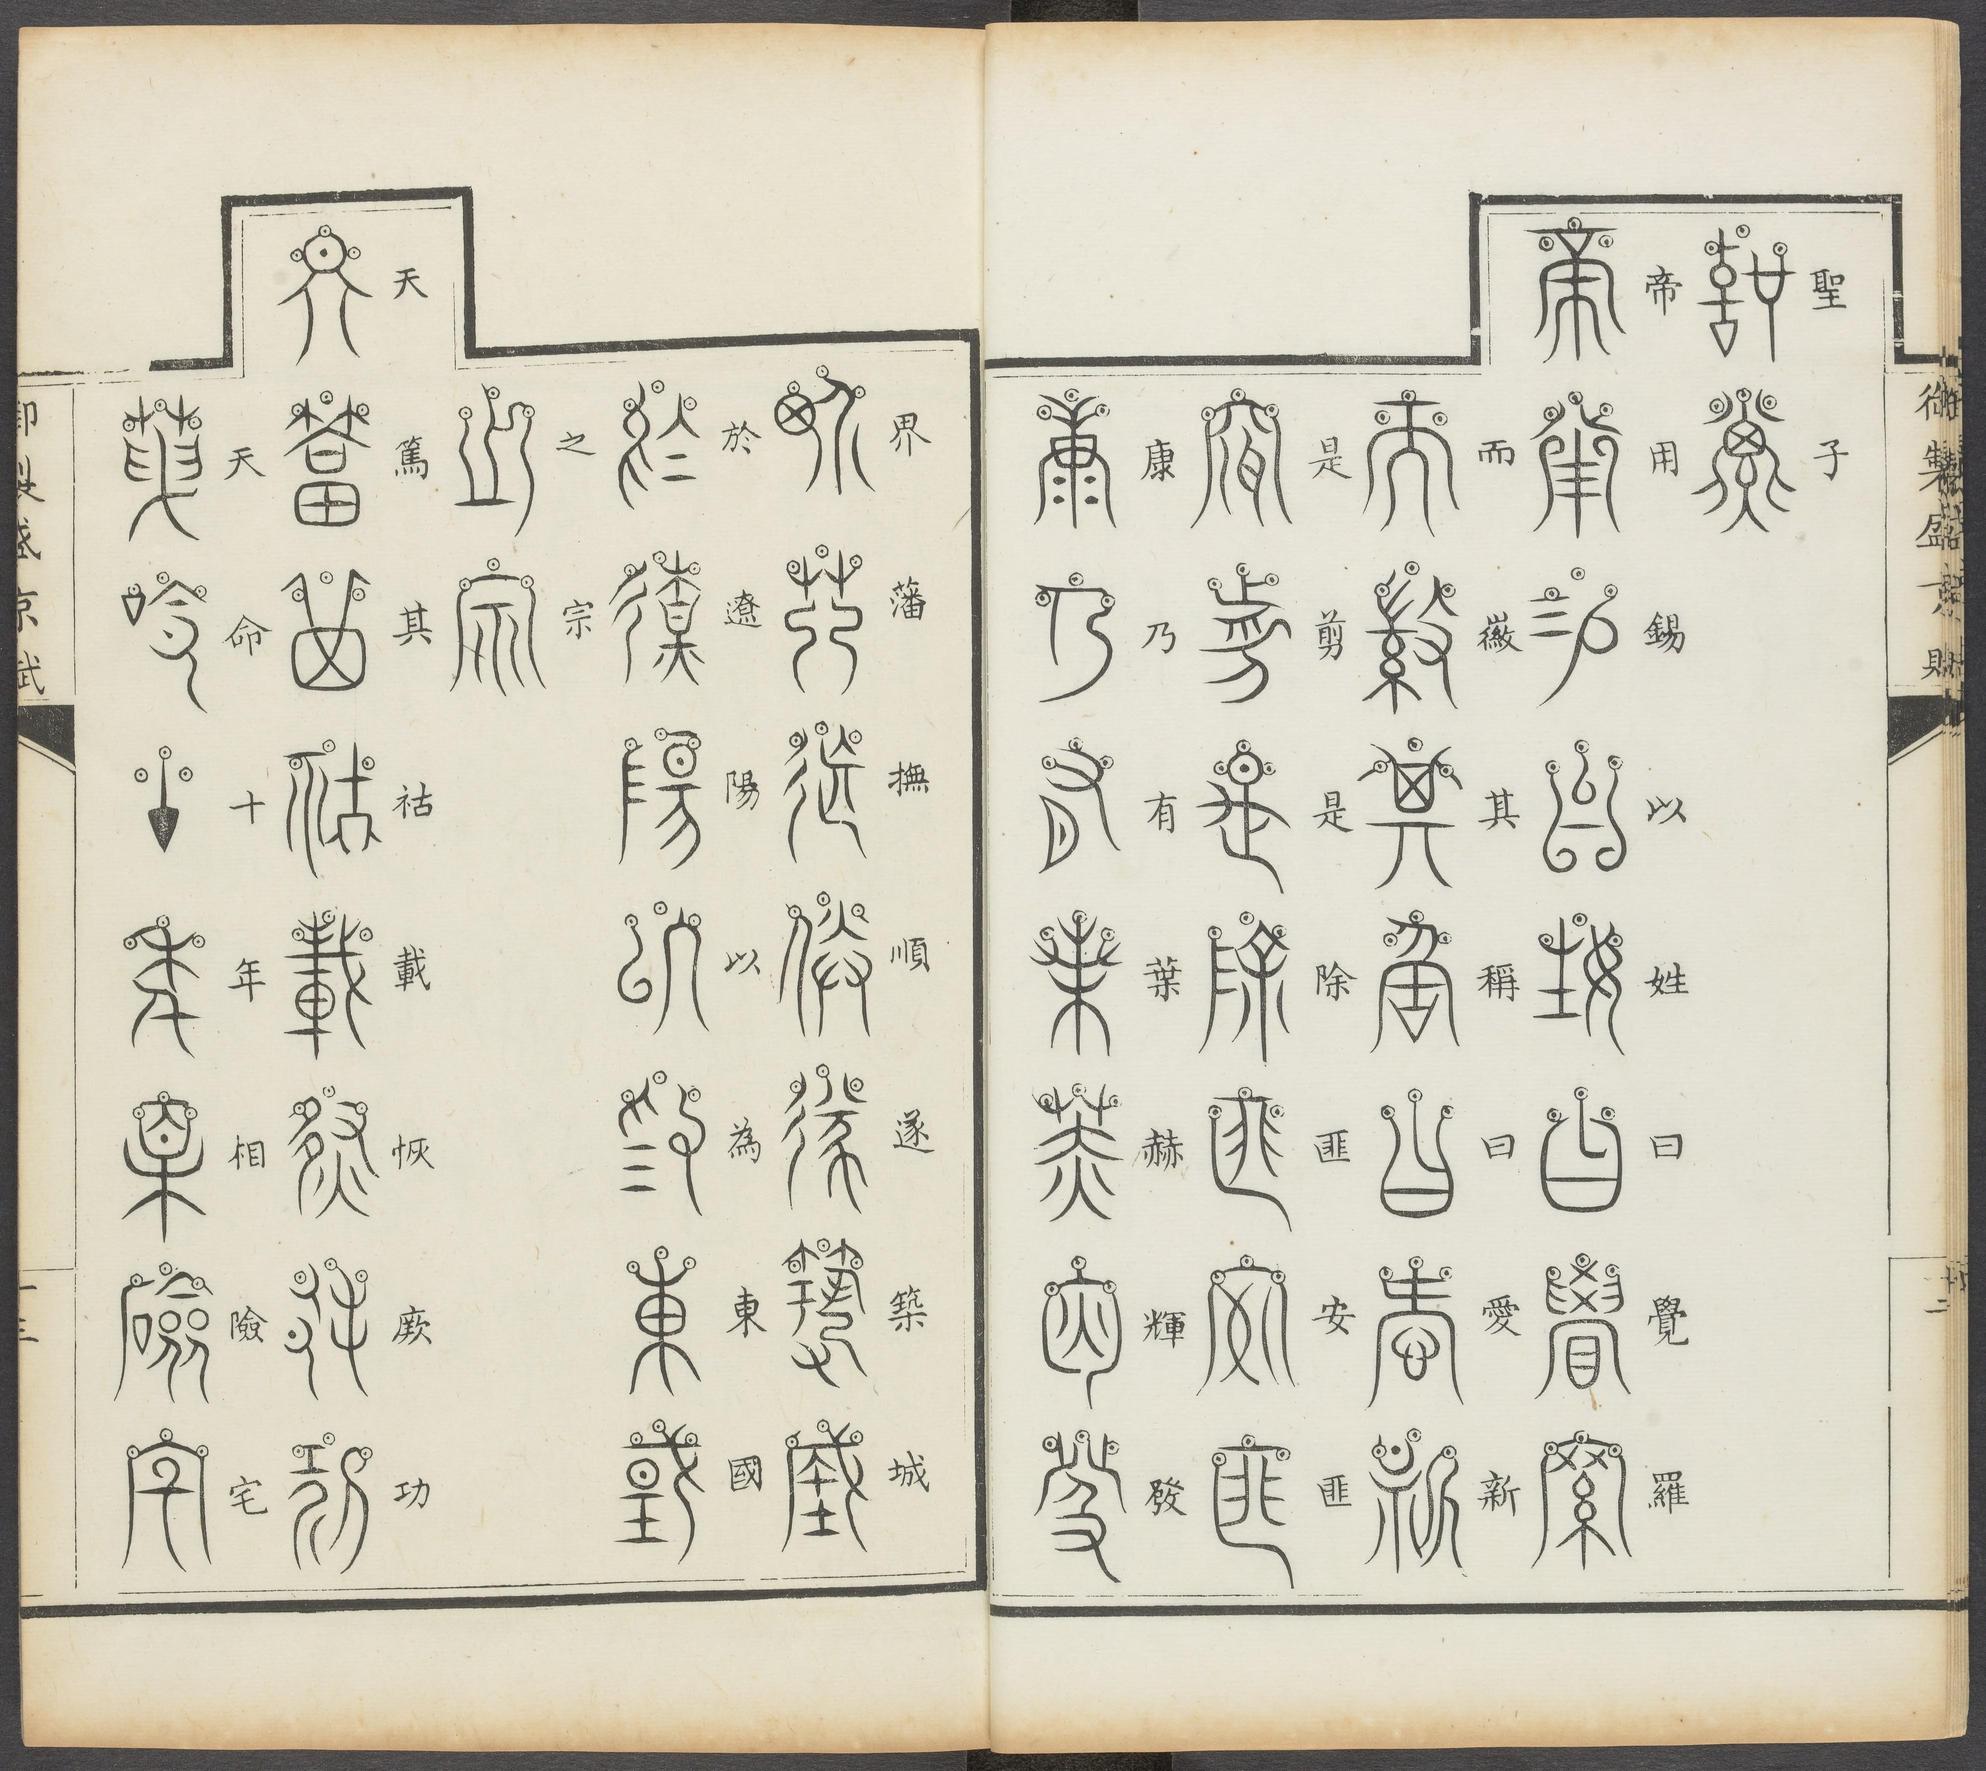 御製盛京賦
聖子
帝用錫以姓曰覺羅
而徽其稱曰愛新
是剪是除匪安匪
康乃有葉赫輝發
界藩撫順遂築城
於遼陽以為東國
之宗
天篤其祜載恢厥功
天命十年相險宅
御製盛京賦